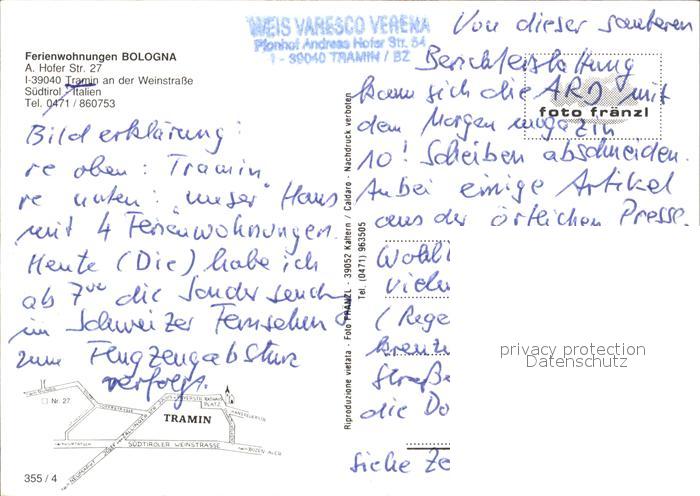 WEIS VARESCO VERENA
Pfonhof Andreas Hofer Str. 54
I - 39040 TRAMIN / BZ
Ferienwohnungen BOLOGNA
A. Hofer Str. 27
I-39040 Tramin an der Weinstraße
Südtirol / Italien
Tel. 0471 / 860753
Bilderklärung:
re oben: Tramin
re unten: "unser" Haus
mit 4 Ferienwohnungen.
Heute (Die) habe ich
ab 7⁰⁰ die Sondersendg
im Schweizer Fernsehen
zum Flugzeugabsturz
verfolgt.
Nr. 27
TRAMIN
SÜDTIROLER WEINSTRASSE
355 / 4
Riproduzione vietata - Foto FRÄNZL - 39052 Kaltern / Caldaro - Nachdruck verboten
Tel. (0471) 963505
Von dieser sauberen
Berichterstattung
kann sich die ARD mit
dem Morgenmagazin
10! Scheiben abschneiden.
Anbei einige Artikel
aus der örtlichen Presse.
foto fränzl
Wohl
viele
(Rege
Kreuz
Straße
die Do
siehe Ze
privacy protection
Datenschutz